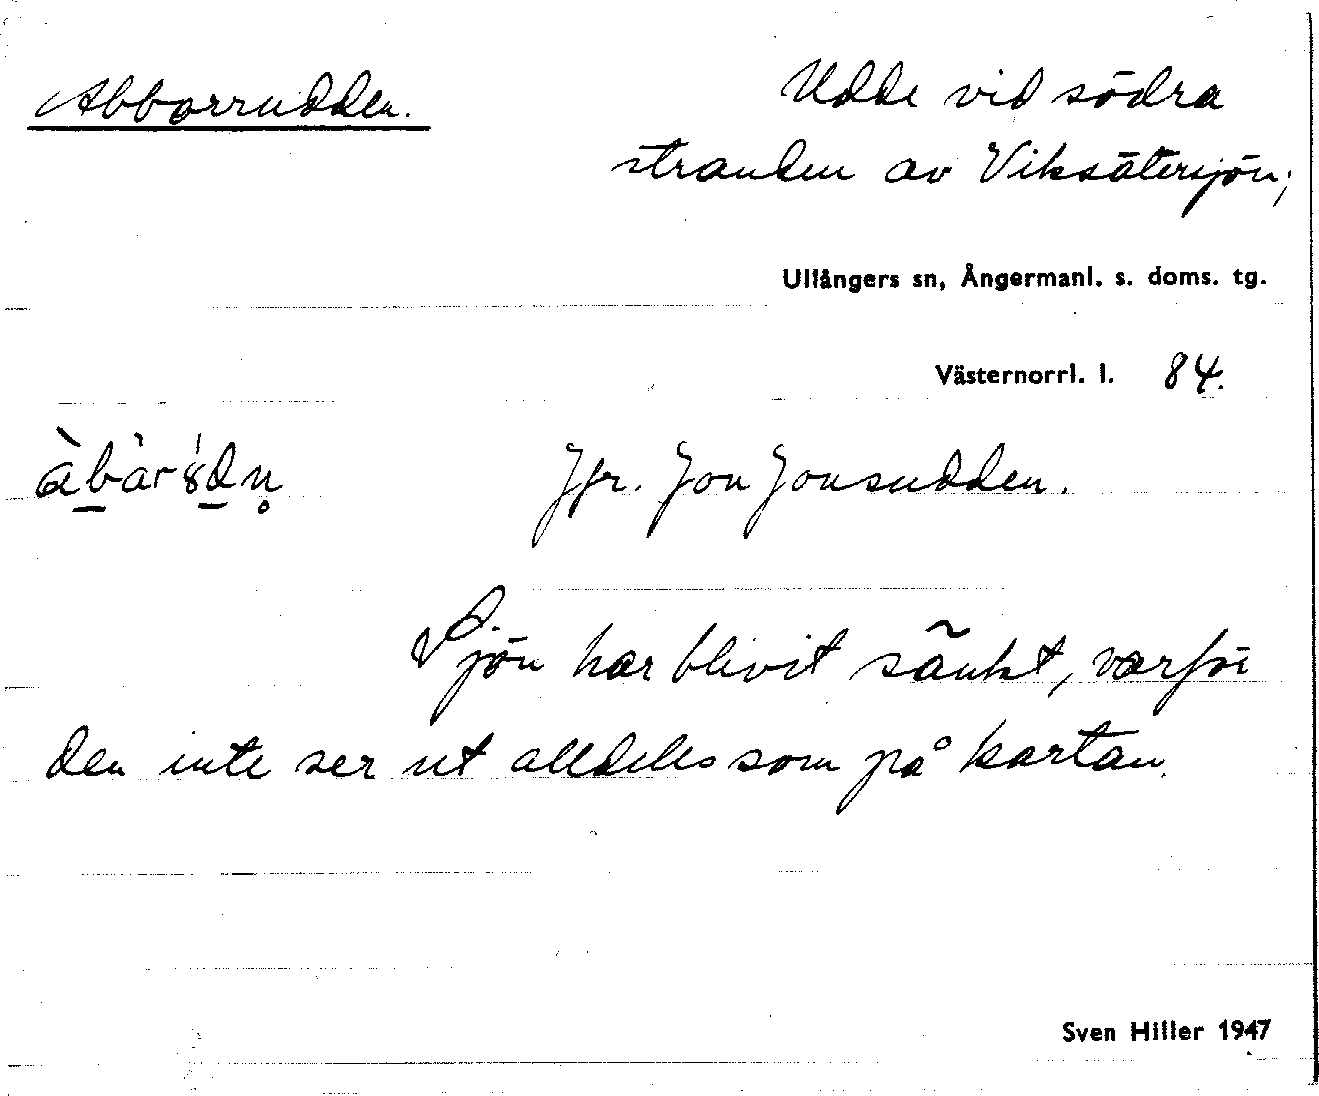 Abborrudden. Udde vid södra
stranden av Viksätersjön;
Ullångers sn, Ångermanl. s. doms. tg.
Västernorrl. l. 84.
Jfr. Jon Jonsudden.
Sjön har blivit sänkt, varför
den inte ser ut alldeles som på kartan.
Sven Hiller 1947